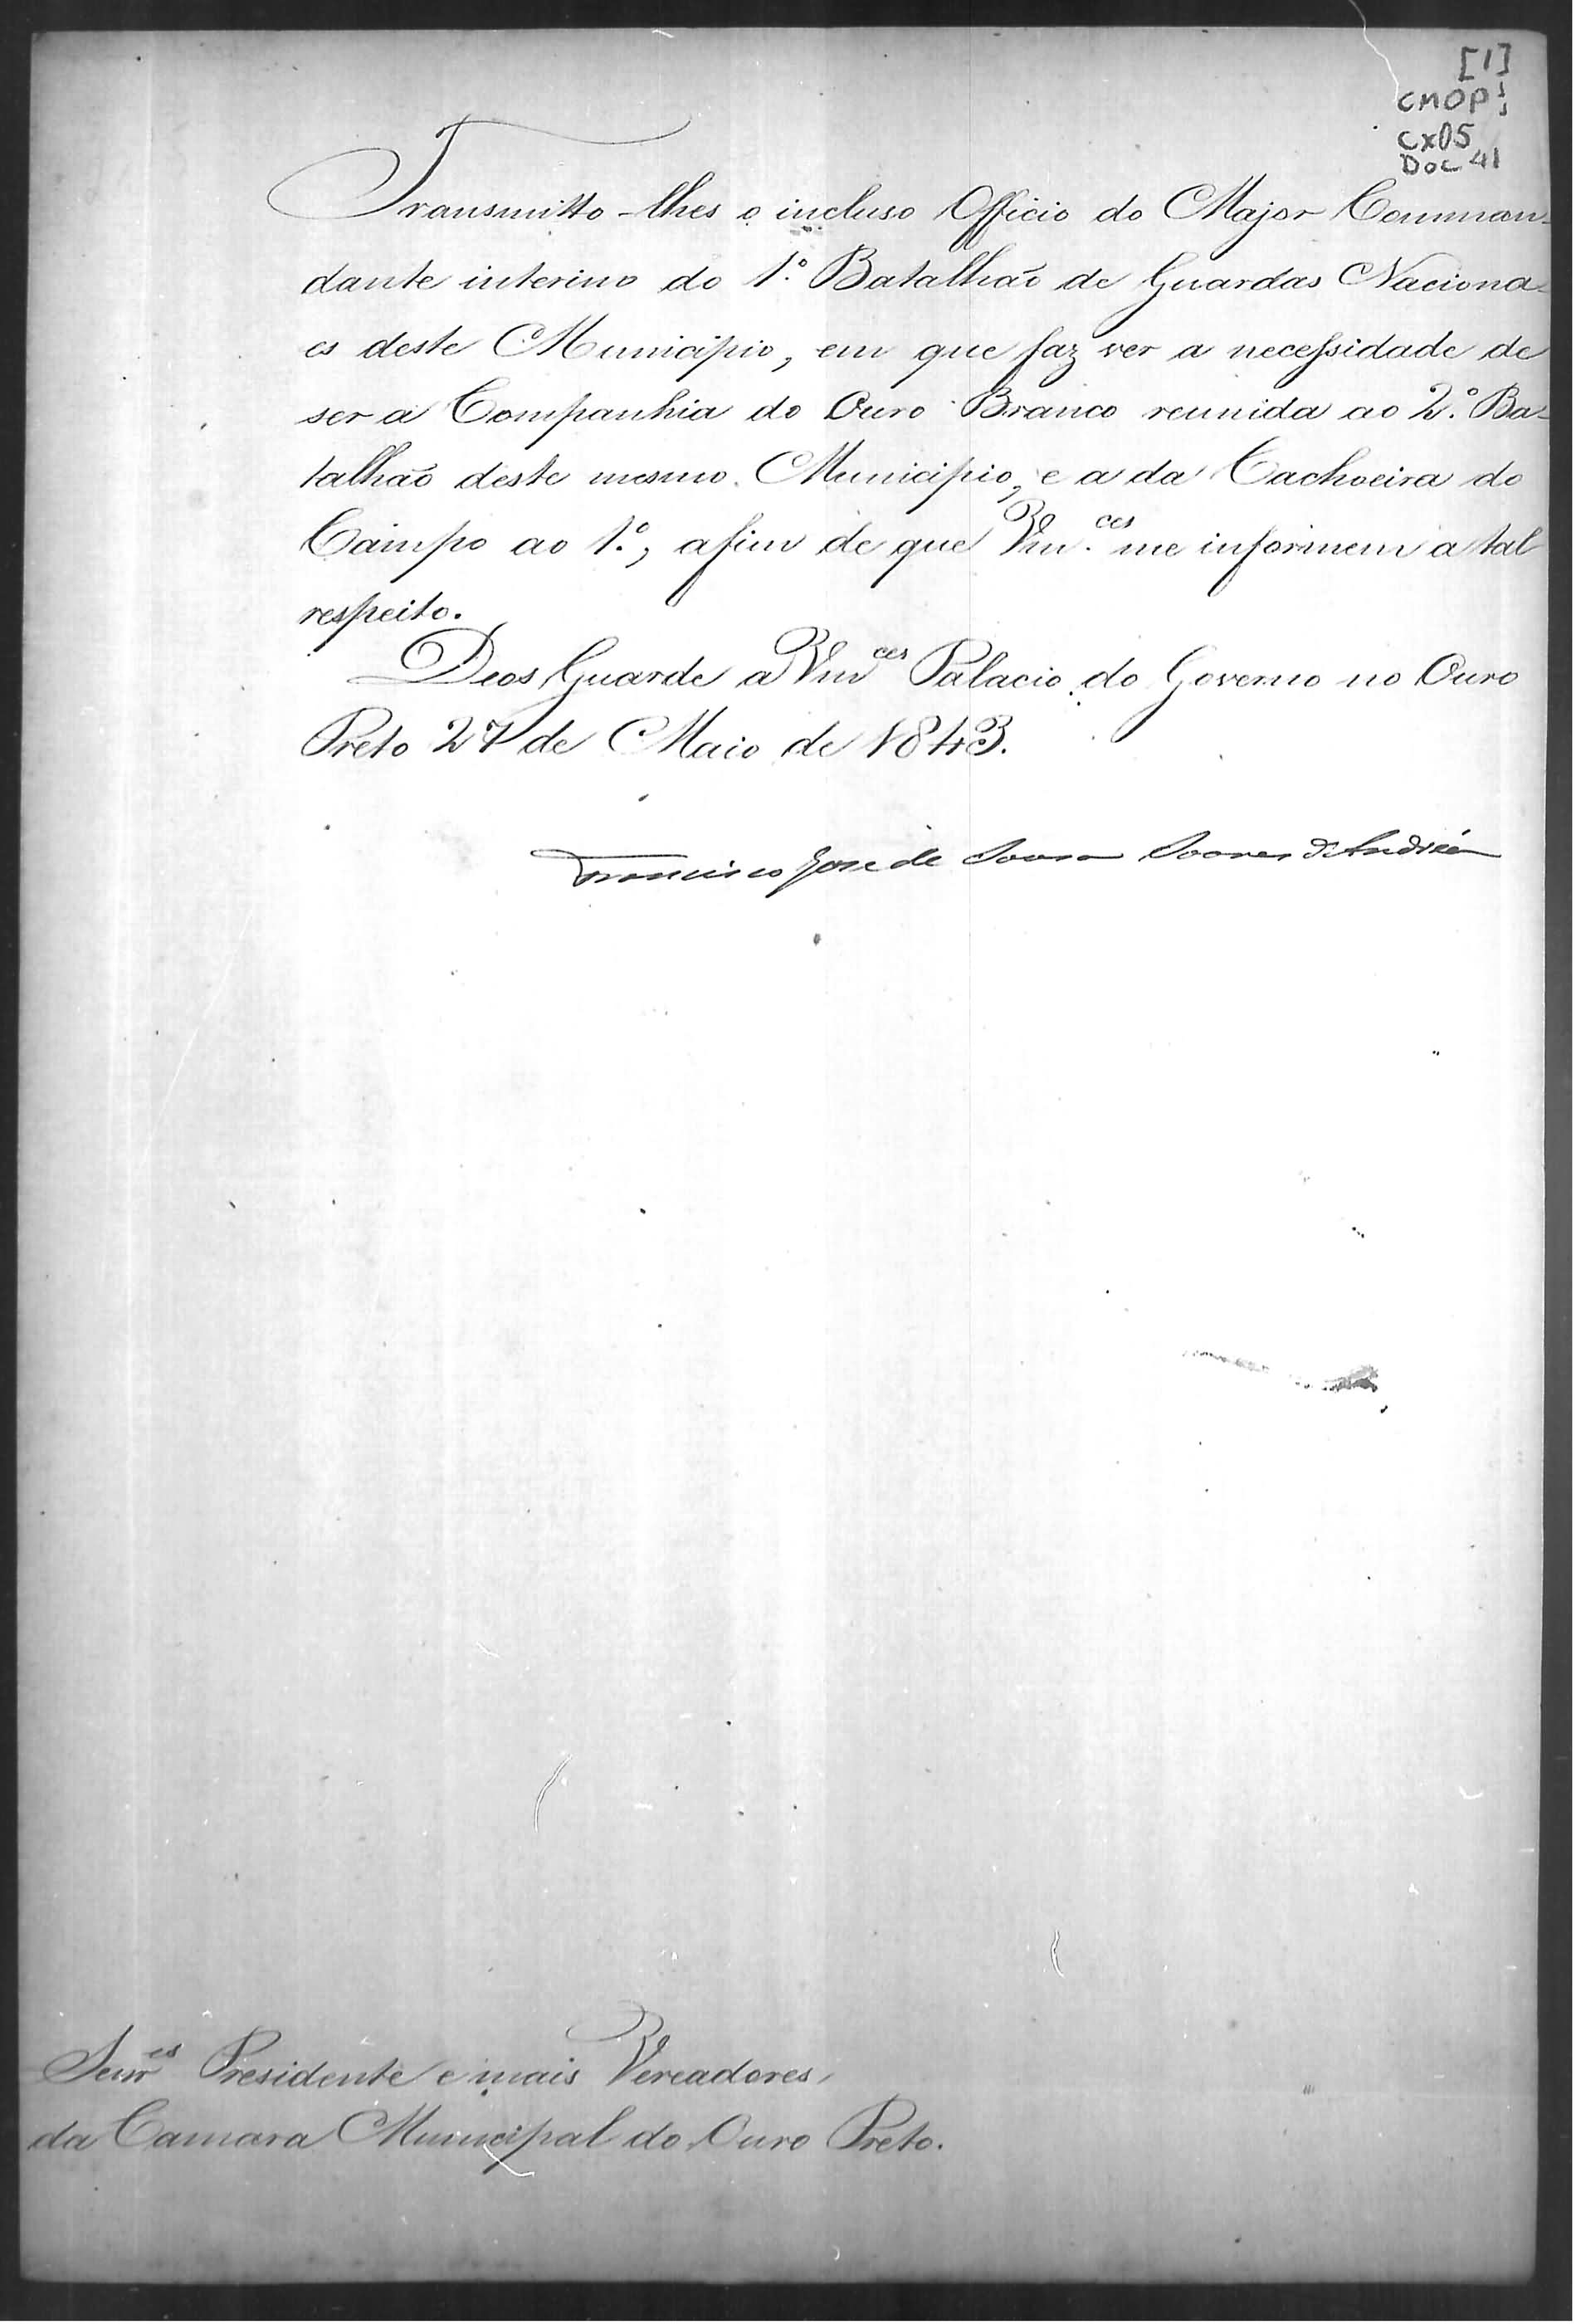 [1]
CMOP
CX05
DOC 41
Transmitto-lhes o incluso Officio do Major Comman-
dante interino do 1.º Batalhaõ de Guardas Naciona-
es deste Municipio, em que faz ver a necessidade de
ser a Companhia do Ouro Branco reunida ao 2.º Ba-
talhaõ deste mesmo Municipio, e a da Cachoeira do
Campo ao 1.º, afim de que Vm.ces me informem a tal
respeito.
Deos Guarde a Vmces Palacio do Governo no Ouro
Preto 27 de Maio de 1843.
Francisco Jose de Sousa Soares d'Andréa
Senres Presidente e mais Vereadores,
da Camara Municipal do Ouro Preto.